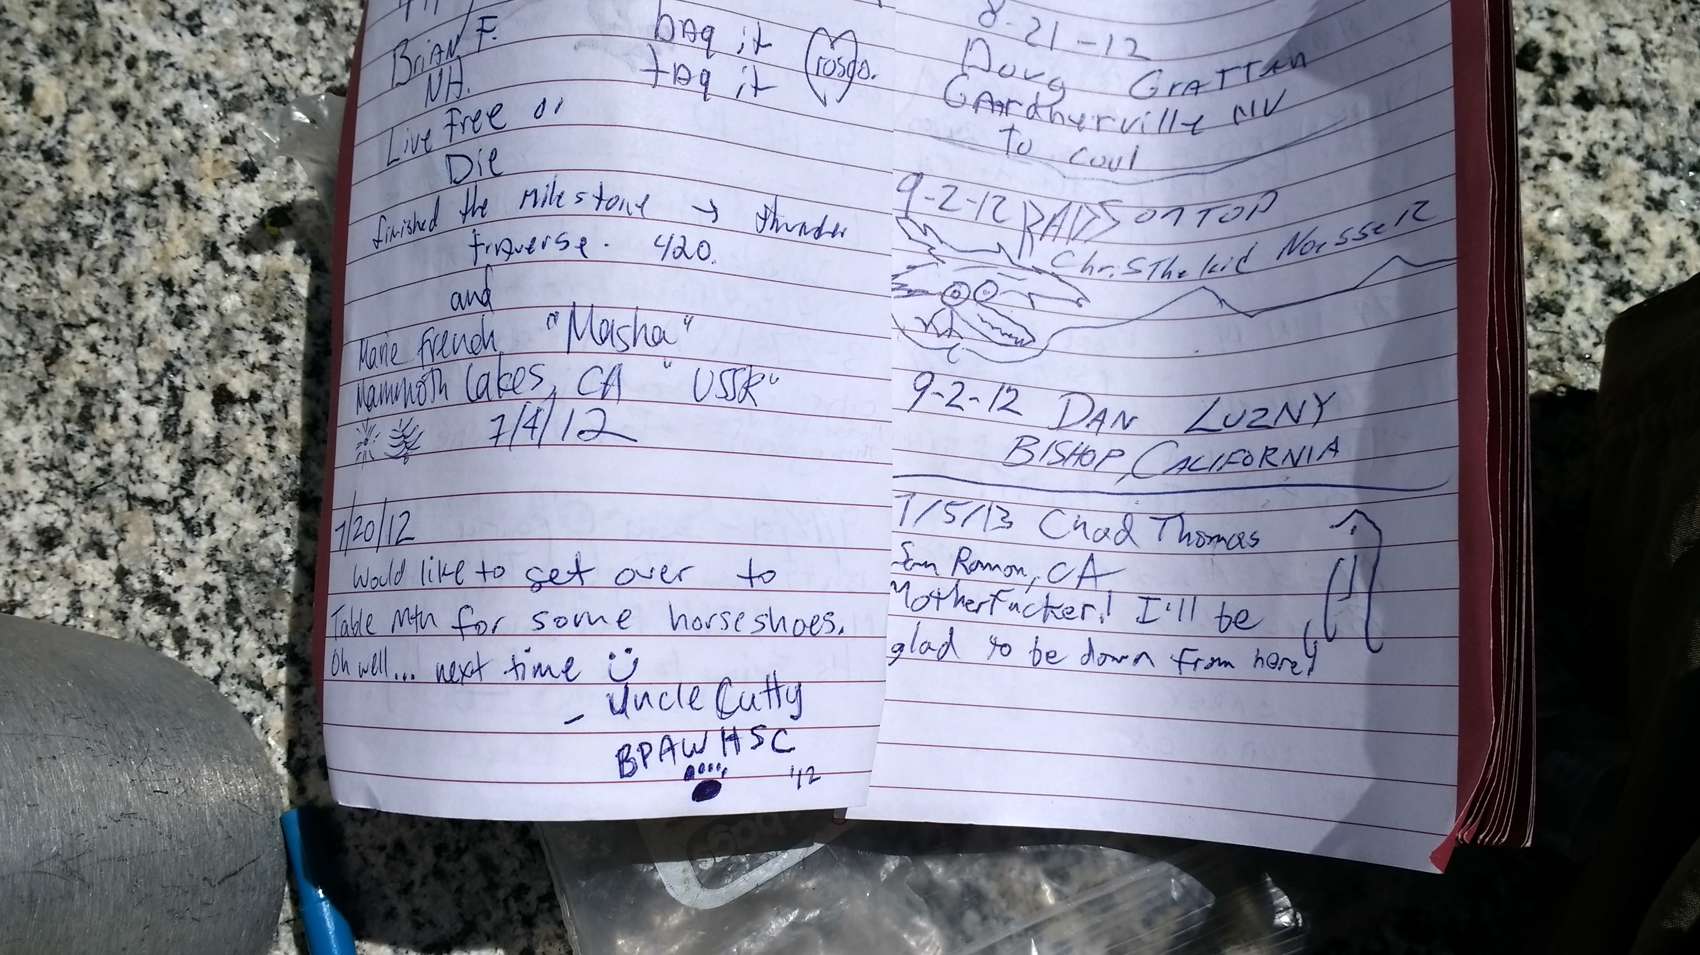 Brian F.
NH.
bag it
tag it
Live free or
Die
finished the Milestone → thunder
traverse. 420.
and
Marie French "Masha"
Mammoth Lakes, CA "USSR"
7/4/12
7/20/12
Would like to get over to
Table Mtn for some horseshoes.
Oh well... next time
- Uncle Cutty
BPAWHSC
'12
8-21-12
Doug Grattan
Gardnerville NV
To cool
9-2-12 RADSS ON TOP
Chris The kid Nossser
9-2-12 DAN LUZNY
BISHOP, CALIFORNIA
7/5/13 Chad Thomas
San Ramon, CA
MotherFucker! I'll be
glad to be down from here!